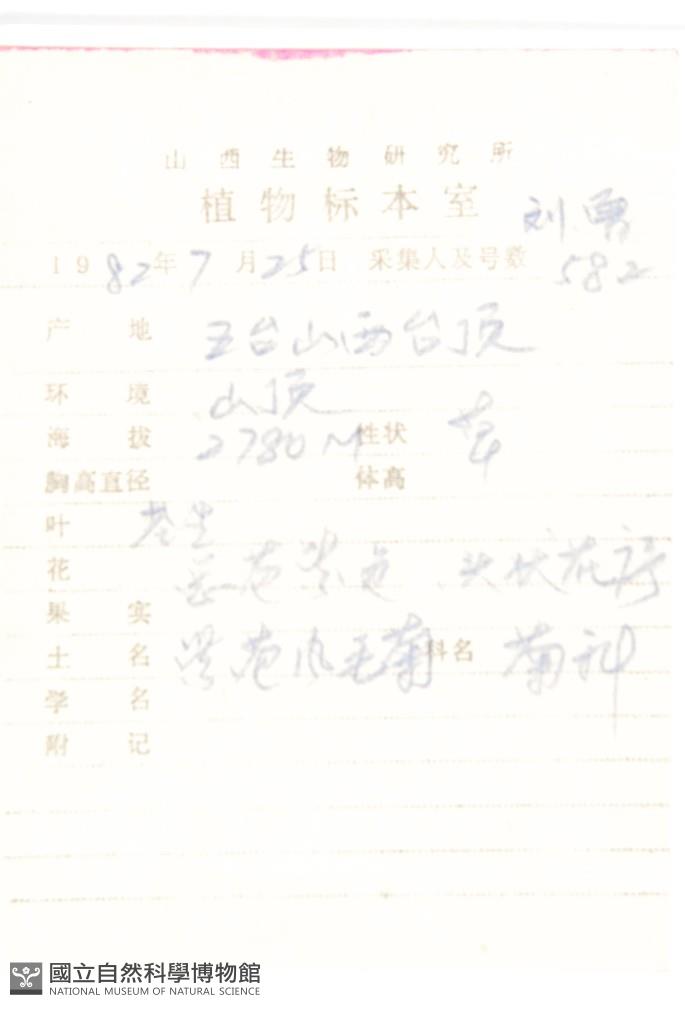 山西生物研究所
植物标本室
刘勇
1982年7月25日 采集人及号数 582
产地 五台山西台顶
环境 山顶
海拔 2780M 性状 草
胸高直径 体高
叶 基生
花 总苞紫色 头状花序
果实
土名 紫苞风毛菊 科名 菊科
学名
附记
國立自然科學博物館
NATIONAL MUSEUM OF NATURAL SCIENCE